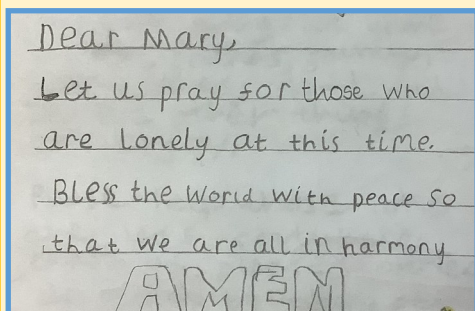 Dear Mary,
Let us pray for those who
are lonely at this time.
Bless the World with peace so
that we are all in harmony
AMEN